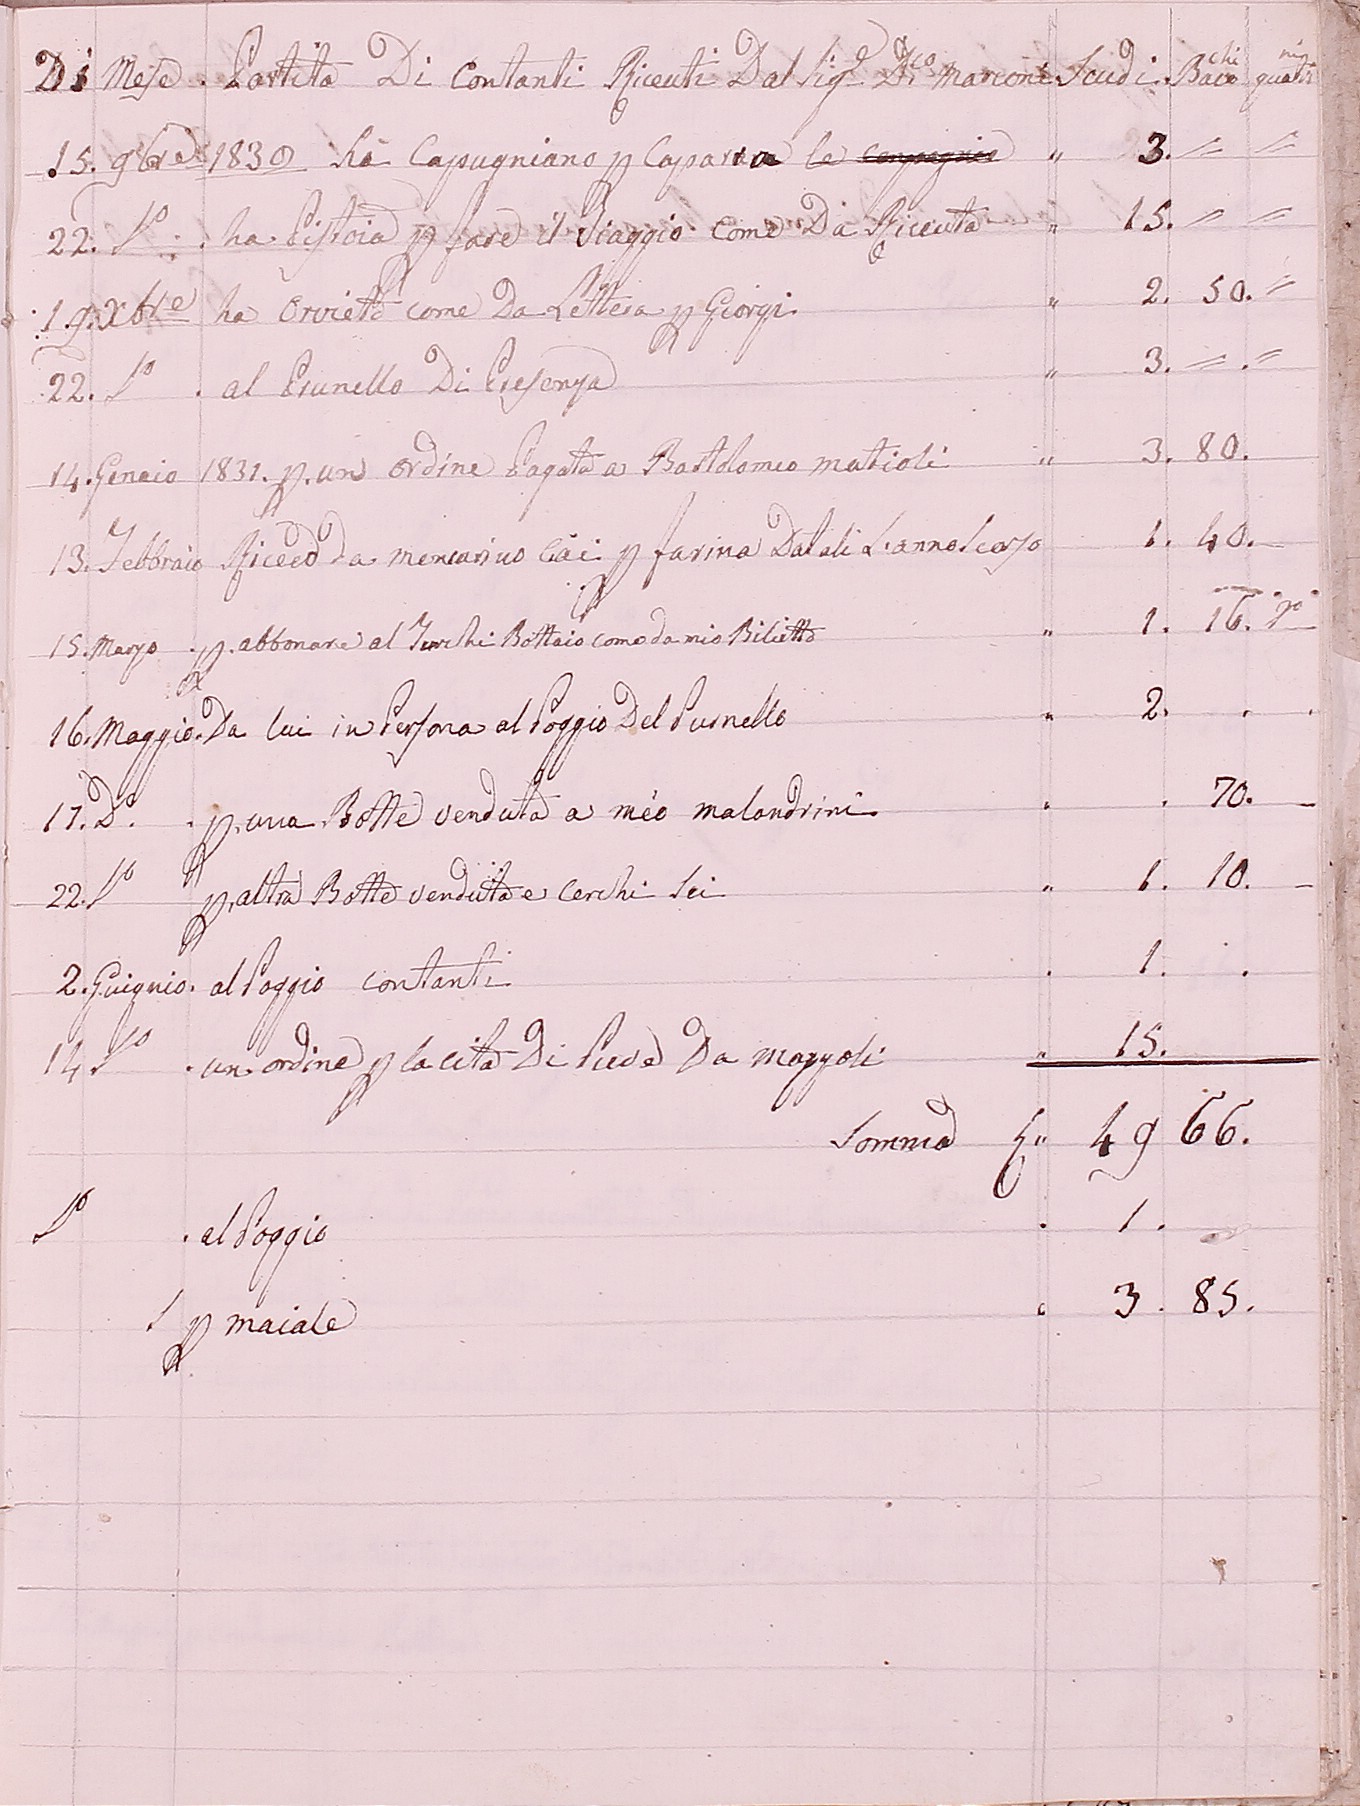 Di Mese. Partita Di Contanti Riceuti Dal Sig.r D.co Marconi Scudi. Baiochi quatrni
15. 9bre 1830 ha Capugniano p Caparra le compagnie " 3. = =
22. do . ha Pistoia p fare il Viaggio come Da Riceuta " 15. = =
19. Xbre ha Orvieto come Da Lettera p Giorgi. " 2. 50. =
22. do . al Prunello Di Presenza " 3. = . =
14. Genaio 1831. p. un ordine Pagato a Bartolomeo matioli " 3. 80.
13. Febbraio da p farina L'anno Scorso 1. 40.
15. Marzo . p. abbonare al Turchi Bottaio come da mio Bilietto " 1. 16.
16. Maggio. Da lui in Persona al Poggio Del Purnello " 2. . .
17. Do. . p. una Botte venduta a méo malandrini . . 70. -
22. do p. altra Botte venduta e Cerchi Sei " 1. 10. -
2. Guignio. al Poggio contanti . 1. .
14 do . un ordine p la cità Di Pieve Da mazzoli " 15.
Somma " 49 66.
do . al Poggio . 1.
p maiale . 3. 85.